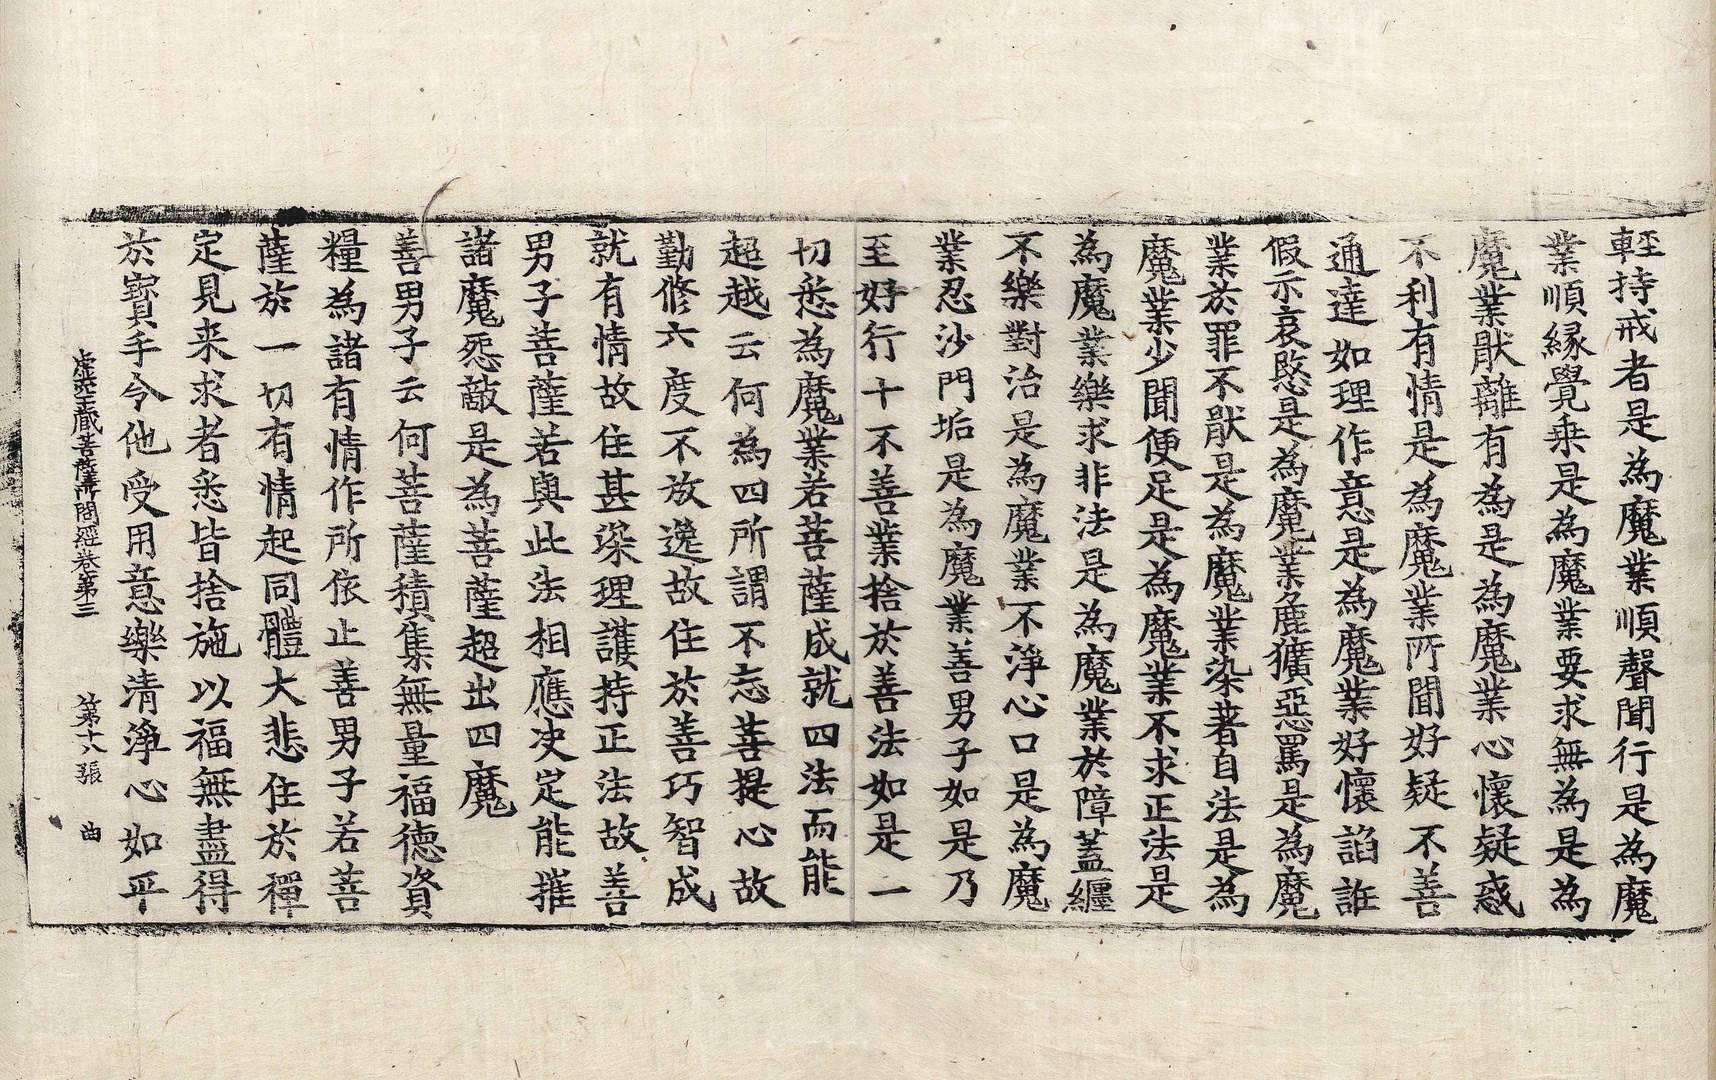 輕持戒者是為魔業順聲聞行是為魔
業順緣覺乘是為魔業要求無為是為
魔業猒離有為是為魔業心懷疑惑
不利有情是為魔業所聞好疑不善
通達如理作意是為魔業好懷諂誑
假示哀愍是為魔業麁獷惡罵是為魔
業於罪不猒是為魔業染著自法是為
魔業少聞便足是為魔業不求正法是
為魔業樂求非法是為魔業於障蓋纏
不樂對治是為魔業不淨心口是為魔
業忍沙門垢是為魔業善男子如是乃
至好行十不善業捨於善法如是一
切悉為魔業若菩薩成就四法而能
超越云何為四所謂不忘菩提心故
勤修六度不放逸故住於善巧智成
就有情故住甚深理護持正法故善
男子菩薩若與此法相應決定能摧
諸魔怨敵是為菩薩超出四魔
善男子云何菩薩積集無量福德資
糧為諸有情作所依止善男子若菩
薩於一切有情起同體大悲住於禪
定見来求者悉皆捨施以福無盡得
於寶手令他受用意樂清淨心如平
虛空藏菩薩所問經卷第三 第十八張 曲